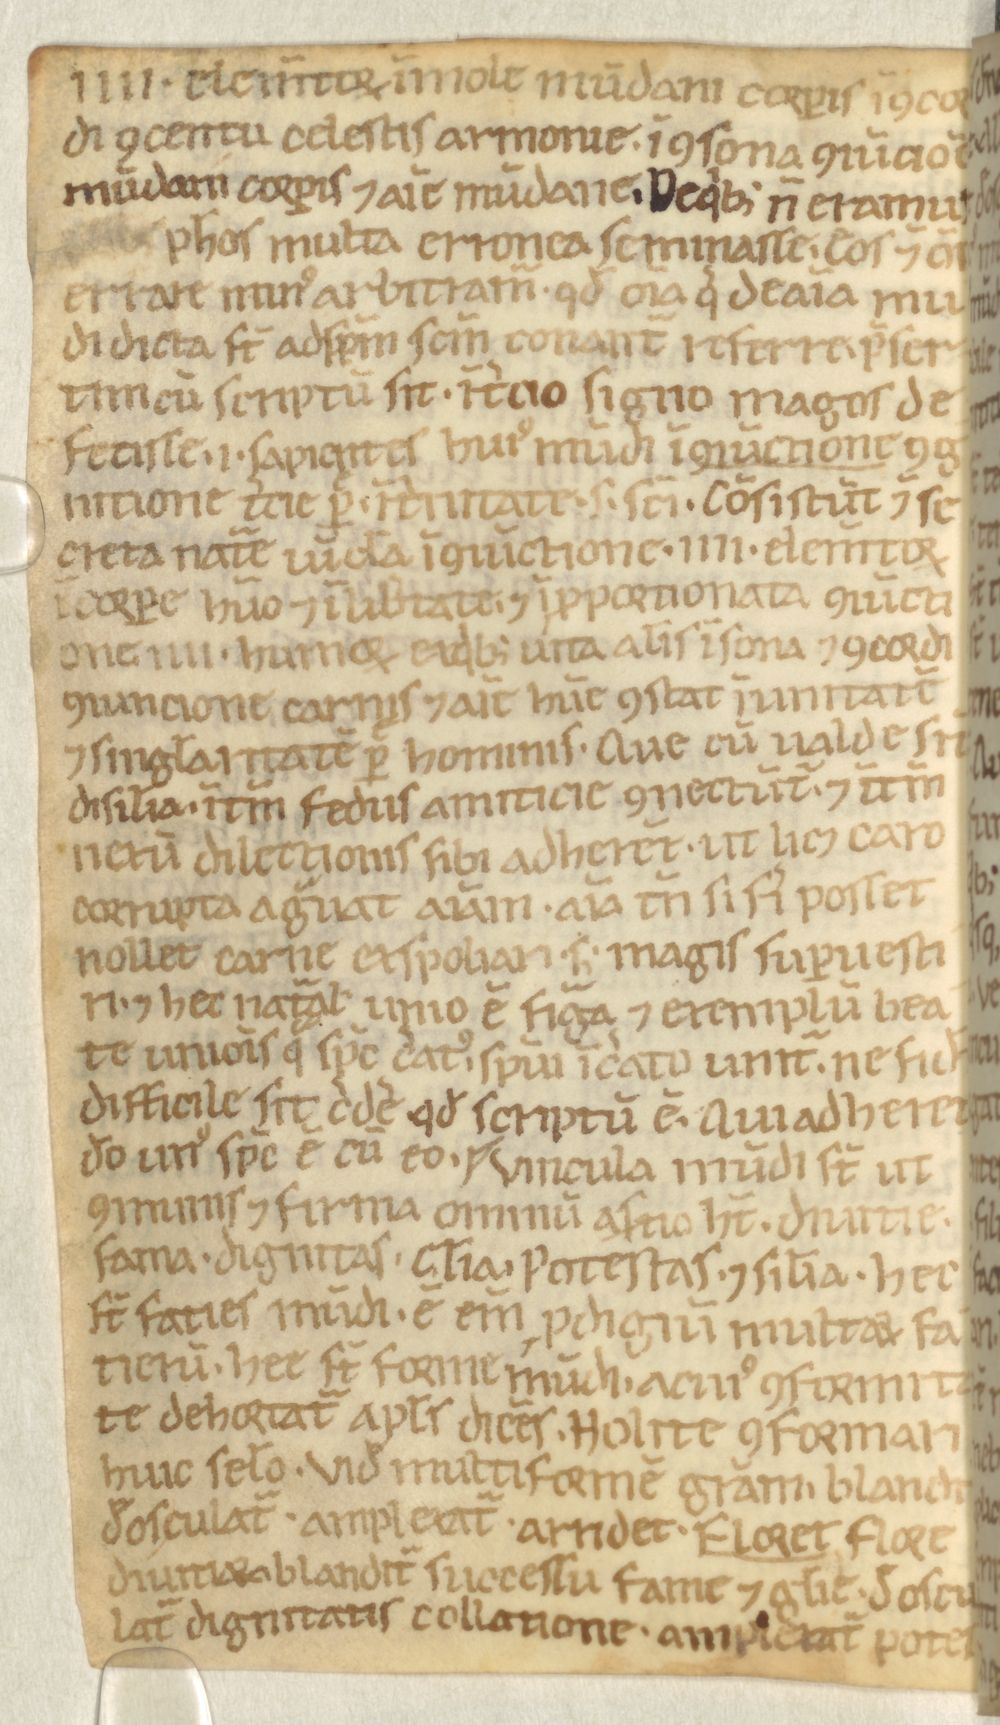 IIII. elem̄toꝝ ī mole mūdani corꝑis ī ꝯcor
di ꝯcentu celestis armonie. ī ꝯsona ꝯiūctiōe
mūdani corꝑis ⁊ aīe mūdane. De qͥbꝫ n̄ eramus
phos multa erronea seminasse. Eos ⁊
errare minꝰ arbitram̄. qd̄ oīa q̄ de aīa mu
di dicta st̄ ad spm̄ scm̄ conant̄ referre. p̄ser
tim cū scriptū sit. ī t̄cio signo magos de
fecisse. i. sapientes huiꝰ mūdi ī ꝯiūctione ꝯg
nitione t̄cie ꝑ. ī t̄nitate. s. sc̄i. Cōsistūt ⁊ se
creta nat̄e uīcla ī ꝯiūctione. IIII. elem̄toꝝ
ī corꝑe hūo ⁊ ī ⁊ ī ꝓportionata ꝯiūcti
one. IIII. humoꝝ e qͥbꝫ uita al̄is ī sona ⁊ ꝯcordi
ꝯiuncione carnis ⁊ aīe hūe ꝯstat ī unitatē
⁊ singl̄aritatē ꝑ hominis. Que cū ualde sīt
disil̄ia. īt̄m fedus amiticie ꝯnectūt̄. ⁊ īt̄m
nerū dilectionis sibi adherēt. ut licꝫ caro
corrupta ag̅uat aīam. aīa tn̄ si fi posset
nollet carne exspoliari. sꝫ magis suꝑuesti
ri. ⁊ hec nat̄al' unio ē fig̅a ⁊ exemplū bea
te uniōis q̄ sp̄c c̄atꝰ. spūi īc̄ato unit̄. ne fid'
difficile sit c̄dē qd̄ scriptū ē. Qui adheret
do unꝰ sp̄c ē cū eo. Vincula mūdi st̄ ut
ꝯminis ⁊ firma omniū astio ht̄. diuitie.
fama. dignitas. Gl̄ia. Potestas. ⁊ sil̄ia. hec
st̄ faties mūdi. ē eni ꝓdigiū multaꝝ fa
tierū. hee st̄ forme mūdi. a cuiꝰ ꝯformita
te dehortat̄ apl̄s dicēs. Nolite ꝯformari
huic sel̄o. Vid' multiformē grām. blandit̄
d'osculat̄. amplexat̄. arridet. Floret flore
diuitiaꝝ. blandit̄ successu fame ⁊ gl̄ie. d'oscu
lat̄ dignitatis collatione. amplexat̄ potes